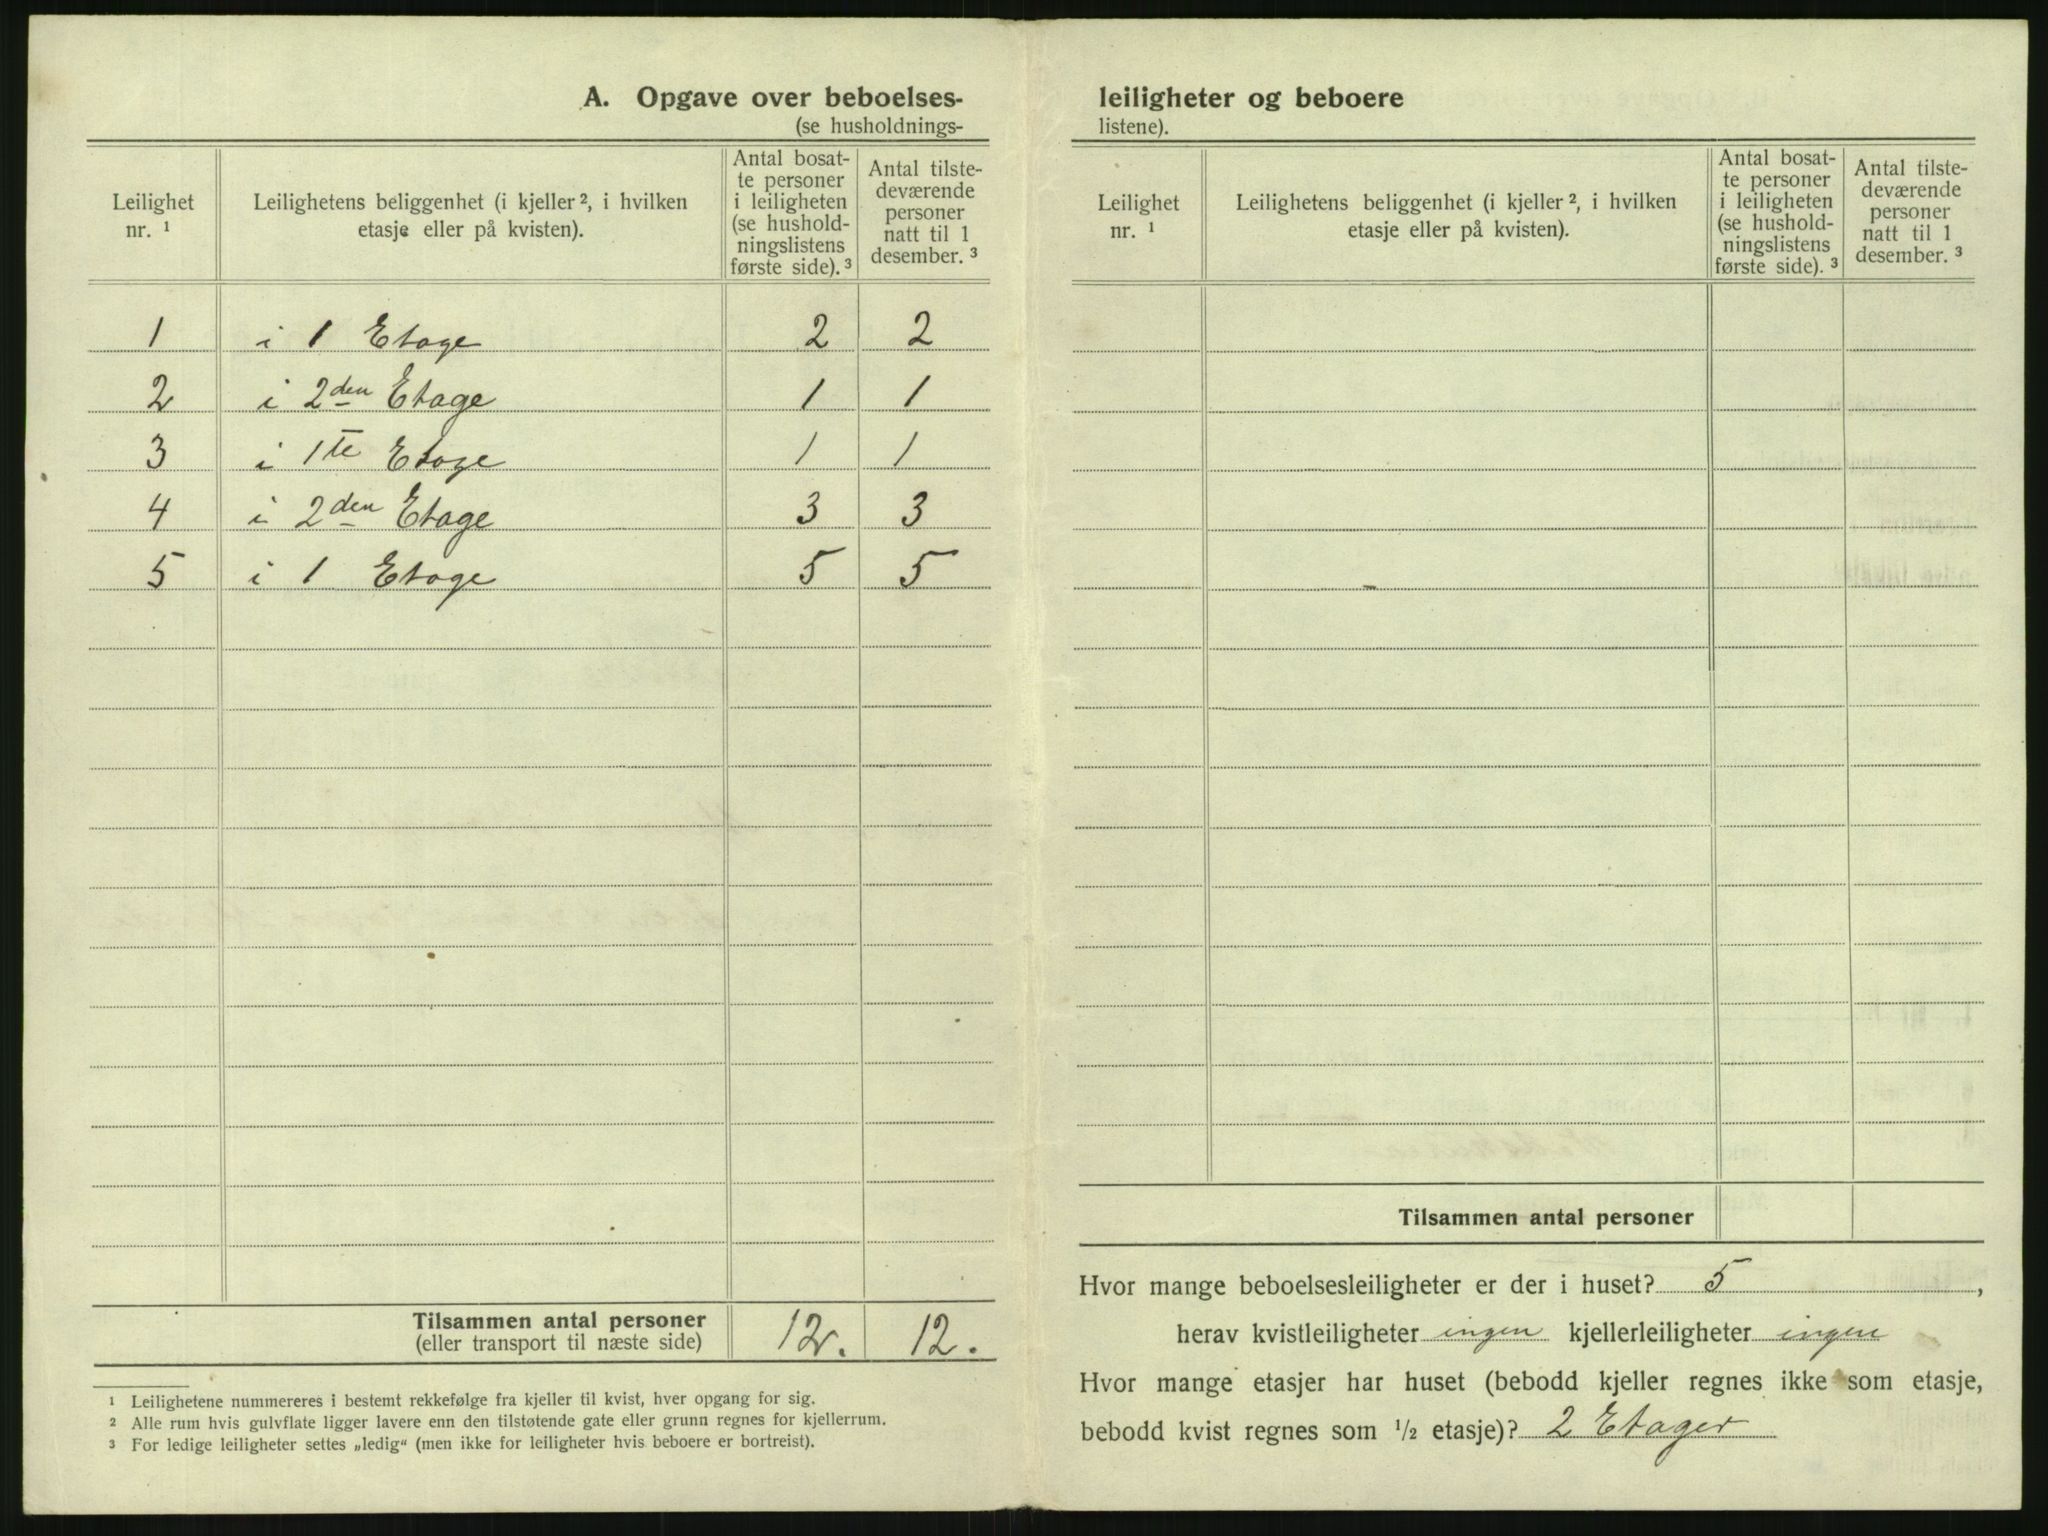 A. Opgave over beboelses-
(se husholdnings-
Leilighet nr. ¹ | Leilighetens beliggenhet (i kjeller ², i hvilken etasje eller på kvisten). | Antal bosatte personer i leiligheten (se husholdningslistens første side). ³ | Antal tilstedeværende personer natt til 1 desember. ³
1 i 1 Etage 2 2
2 i 2den Etage 1 1
3 i 1te Etage 1 1
4 i 2den Etage 3 3
5 i 1 Etage 5 5
Tilsammen antal personer 12. 12.
(eller transport til næste side)
¹ Leilighetene nummereres i bestemt rekkefølge fra kjeller til kvist, hver opgang for sig.
² Alle rum hvis gulvflate ligger lavere enn den tilstøtende gate eller grunn regnes for kjellerrum.
³ For ledige leiligheter settes „ledig“ (men ikke for leiligheter hvis beboere er bortreist).
leiligheter og beboere
listene).
Leilighet nr. ¹ | Leilighetens beliggenhet (i kjeller ², i hvilken etasje eller på kvisten). | Antal bosatte personer i leiligheten (se husholdningslistens første side). ³ | Antal tilstedeværende personer natt til 1 desember. ³
Tilsammen antal personer
Hvor mange beboelsesleiligheter er der i huset? 5,
herav kvistleiligheter ingen kjellerleiligheter ingen
Hvor mange etasjer har huset (bebodd kjeller regnes ikke som etasje,
bebodd kvist regnes som ½ etasje)? 2 Etager